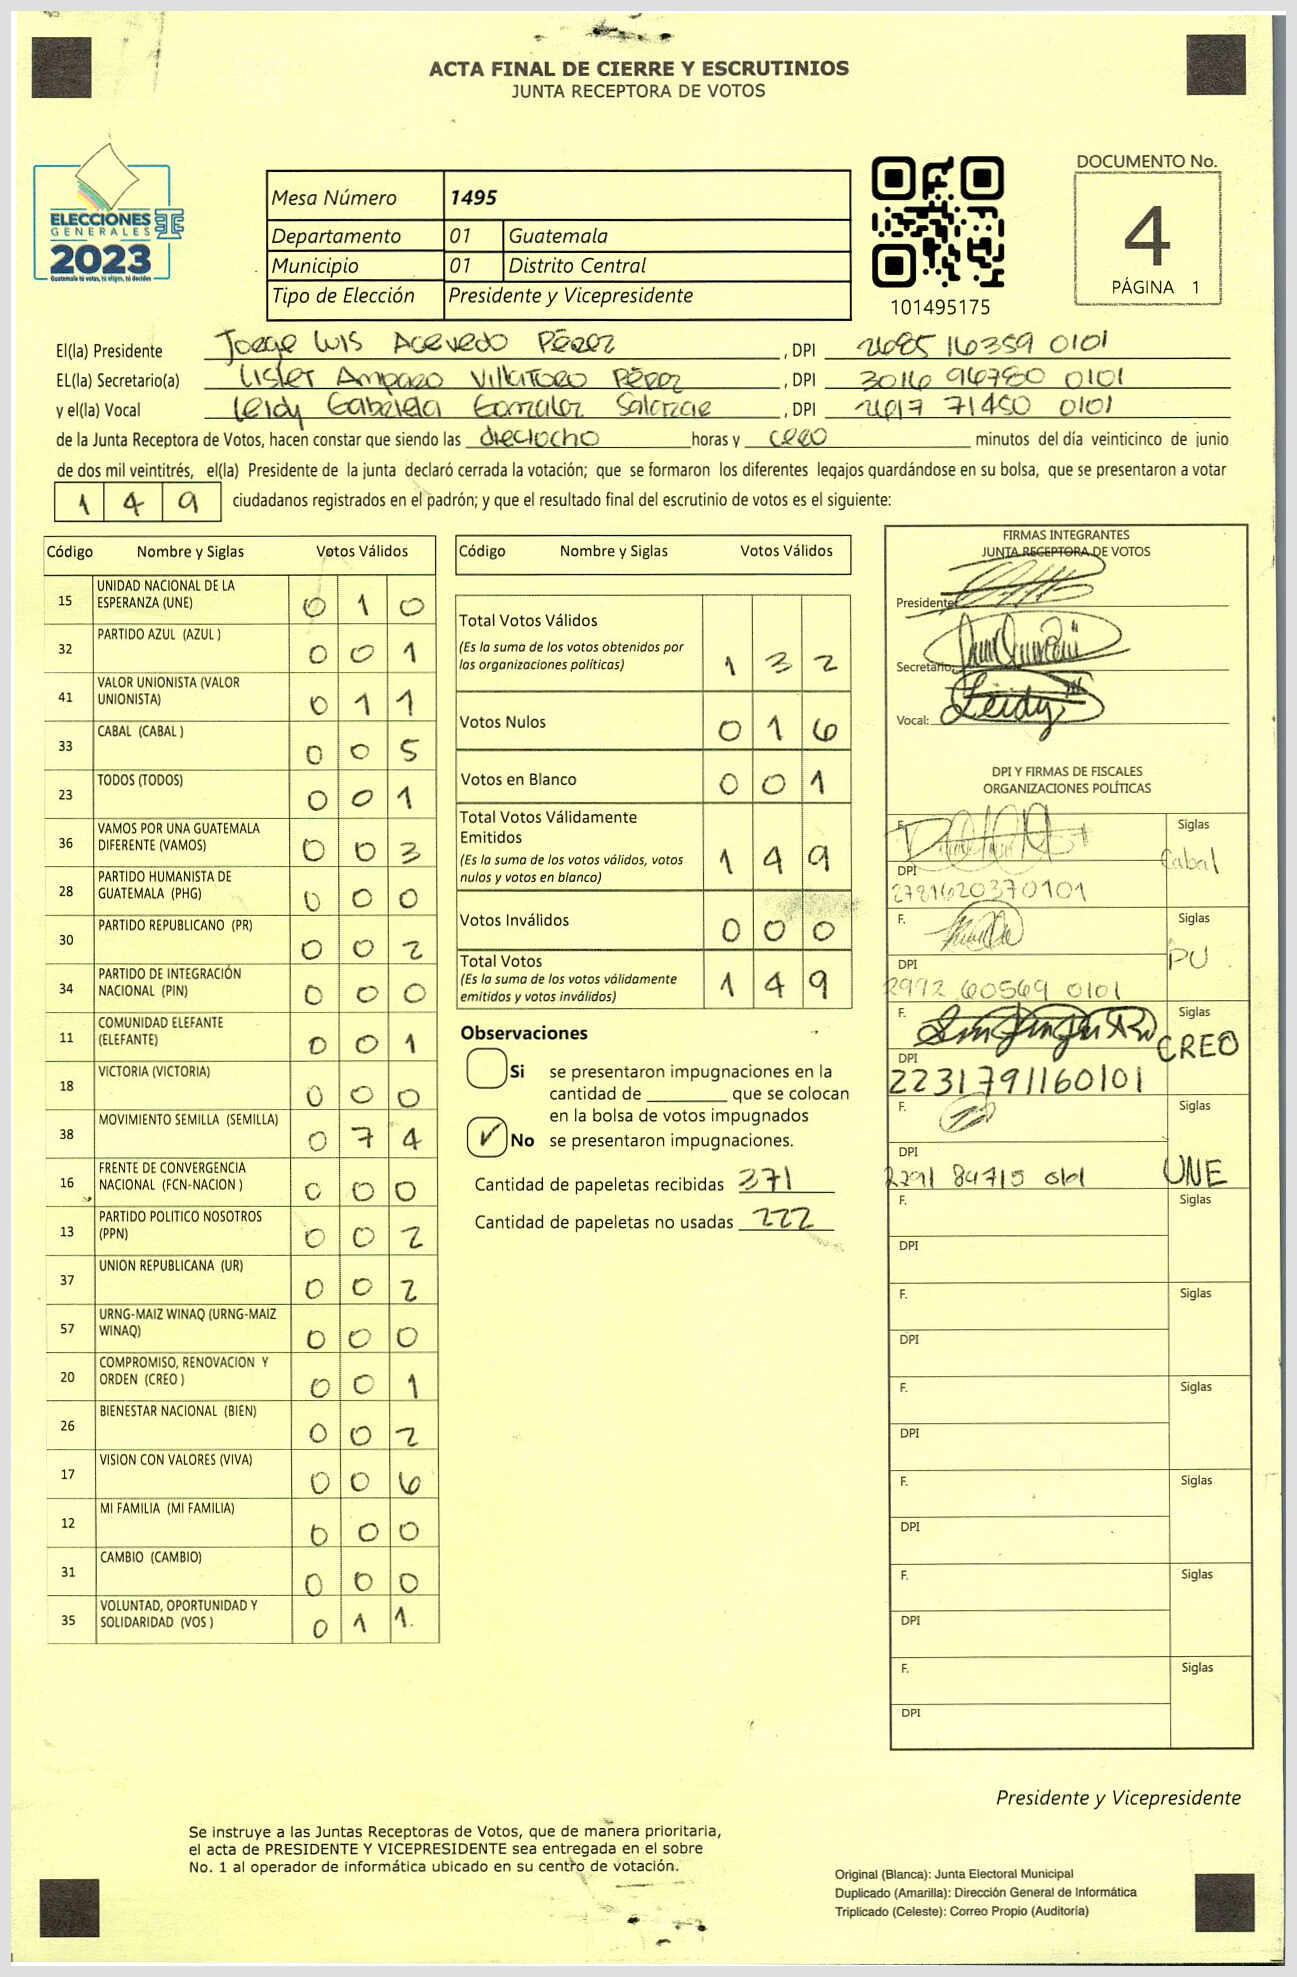 ACTA FINAL DE CIERRE Y ESCRUTINIOS
JUNTA RECEPTORA DE VOTOS
ELECCIONES
GENERALES
2023
Guatemala tú votas, tú eliges, tú decides
Mesa Número 1495
Departamento 01 Guatemala
Municipio 01 Distrito Central
Tipo de Elección Presidente y Vicepresidente
101495175
DOCUMENTO No.
4
PÁGINA 1
El(la) Presidente Jorge Luis Acevedo Pérez , DPI 2685 16359 0101
EL(la) Secretario(a) Lister Amparo Villatoro Pérez , DPI 3016 96780 0101
y el(la) Vocal Leidy Gabriela Gonzalez Salazar , DPI 2617 71450 0101
de la Junta Receptora de Votos, hacen constar que siendo las dieciocho horas y cero minutos del día veinticinco de junio
de dos mil veintitrés, el(la) Presidente de la junta declaró cerrada la votación; que se formaron los diferentes legajos guardándose en su bolsa, que se presentaron a votar
149 ciudadanos registrados en el padrón; y que el resultado final del escrutinio de votos es el siguiente:
Código Nombre y Siglas Votos Válidos
15 UNIDAD NACIONAL DE LA ESPERANZA (UNE) 0 1 0
32 PARTIDO AZUL (AZUL ) 0 0 1
41 VALOR UNIONISTA (VALOR UNIONISTA) 0 1 1
33 CABAL (CABAL ) 0 0 5
23 TODOS (TODOS) 0 0 1
36 VAMOS POR UNA GUATEMALA DIFERENTE (VAMOS) 0 0 3
28 PARTIDO HUMANISTA DE GUATEMALA (PHG) 0 0 0
30 PARTIDO REPUBLICANO (PR) 0 0 2
34 PARTIDO DE INTEGRACIÓN NACIONAL (PIN) 0 0 0
11 COMUNIDAD ELEFANTE (ELEFANTE) 0 0 1
18 VICTORIA (VICTORIA) 0 0 0
38 MOVIMIENTO SEMILLA (SEMILLA) 0 7 4
16 FRENTE DE CONVERGENCIA NACIONAL (FCN-NACION ) 0 0 0
13 PARTIDO POLITICO NOSOTROS (PPN) 0 0 2
37 UNION REPUBLICANA (UR) 0 0 2
57 URNG-MAIZ WINAQ (URNG-MAIZ WINAQ) 0 0 0
20 COMPROMISO, RENOVACION Y ORDEN (CREO ) 0 0 1
26 BIENESTAR NACIONAL (BIEN) 0 0 2
17 VISION CON VALORES (VIVA) 0 0 6
12 MI FAMILIA (MI FAMILIA) 0 0 0
31 CAMBIO (CAMBIO) 0 0 0
35 VOLUNTAD, OPORTUNIDAD Y SOLIDARIDAD (VOS ) 0 1 1
Código Nombre y Siglas Votos Válidos
Total Votos Válidos
(Es la suma de los votos obtenidos por
las organizaciones políticas) 1 3 2
Votos Nulos 0 1 6
Votos en Blanco 0 0 1
Total Votos Válidamente
Emitidos
(Es la suma de los votos válidos, votos
nulos y votos en blanco) 1 4 9
Votos Inválidos 0 0 0
Total Votos
(Es la suma de los votos válidamente
emitidos y votos inválidos) 1 4 9
Observaciones
Si se presentaron impugnaciones en la
cantidad de ________ que se colocan
en la bolsa de votos impugnados
✓ No se presentaron impugnaciones.
Cantidad de papeletas recibidas 371
Cantidad de papeletas no usadas 222
FIRMAS INTEGRANTES
JUNTA RECEPTORA DE VOTOS
Presidente:
Secretario:
Vocal: Leidy
DPI Y FIRMAS DE FISCALES
ORGANIZACIONES POLÍTICAS
F. Siglas
Cabal
DPI
2781620370101
F. Siglas
PU
DPI
2992 60569 0101
F. Siglas
CREO
DPI
2231791160101
F. Siglas
DPI
UNE
F. Siglas
DPI
F. Siglas
DPI
F. Siglas
DPI
F. Siglas
DPI
F. Siglas
DPI
F. Siglas
DPI
Presidente y Vicepresidente
Se instruye a las Juntas Receptoras de Votos, que de manera prioritaria,
el acta de PRESIDENTE Y VICEPRESIDENTE sea entregada en el sobre
No. 1 al operador de informática ubicado en su centro de votación.
Original (Blanca): Junta Electoral Municipal
Duplicado (Amarilla): Dirección General de Informática
Triplicado (Celeste): Correo Propio (Auditoría)